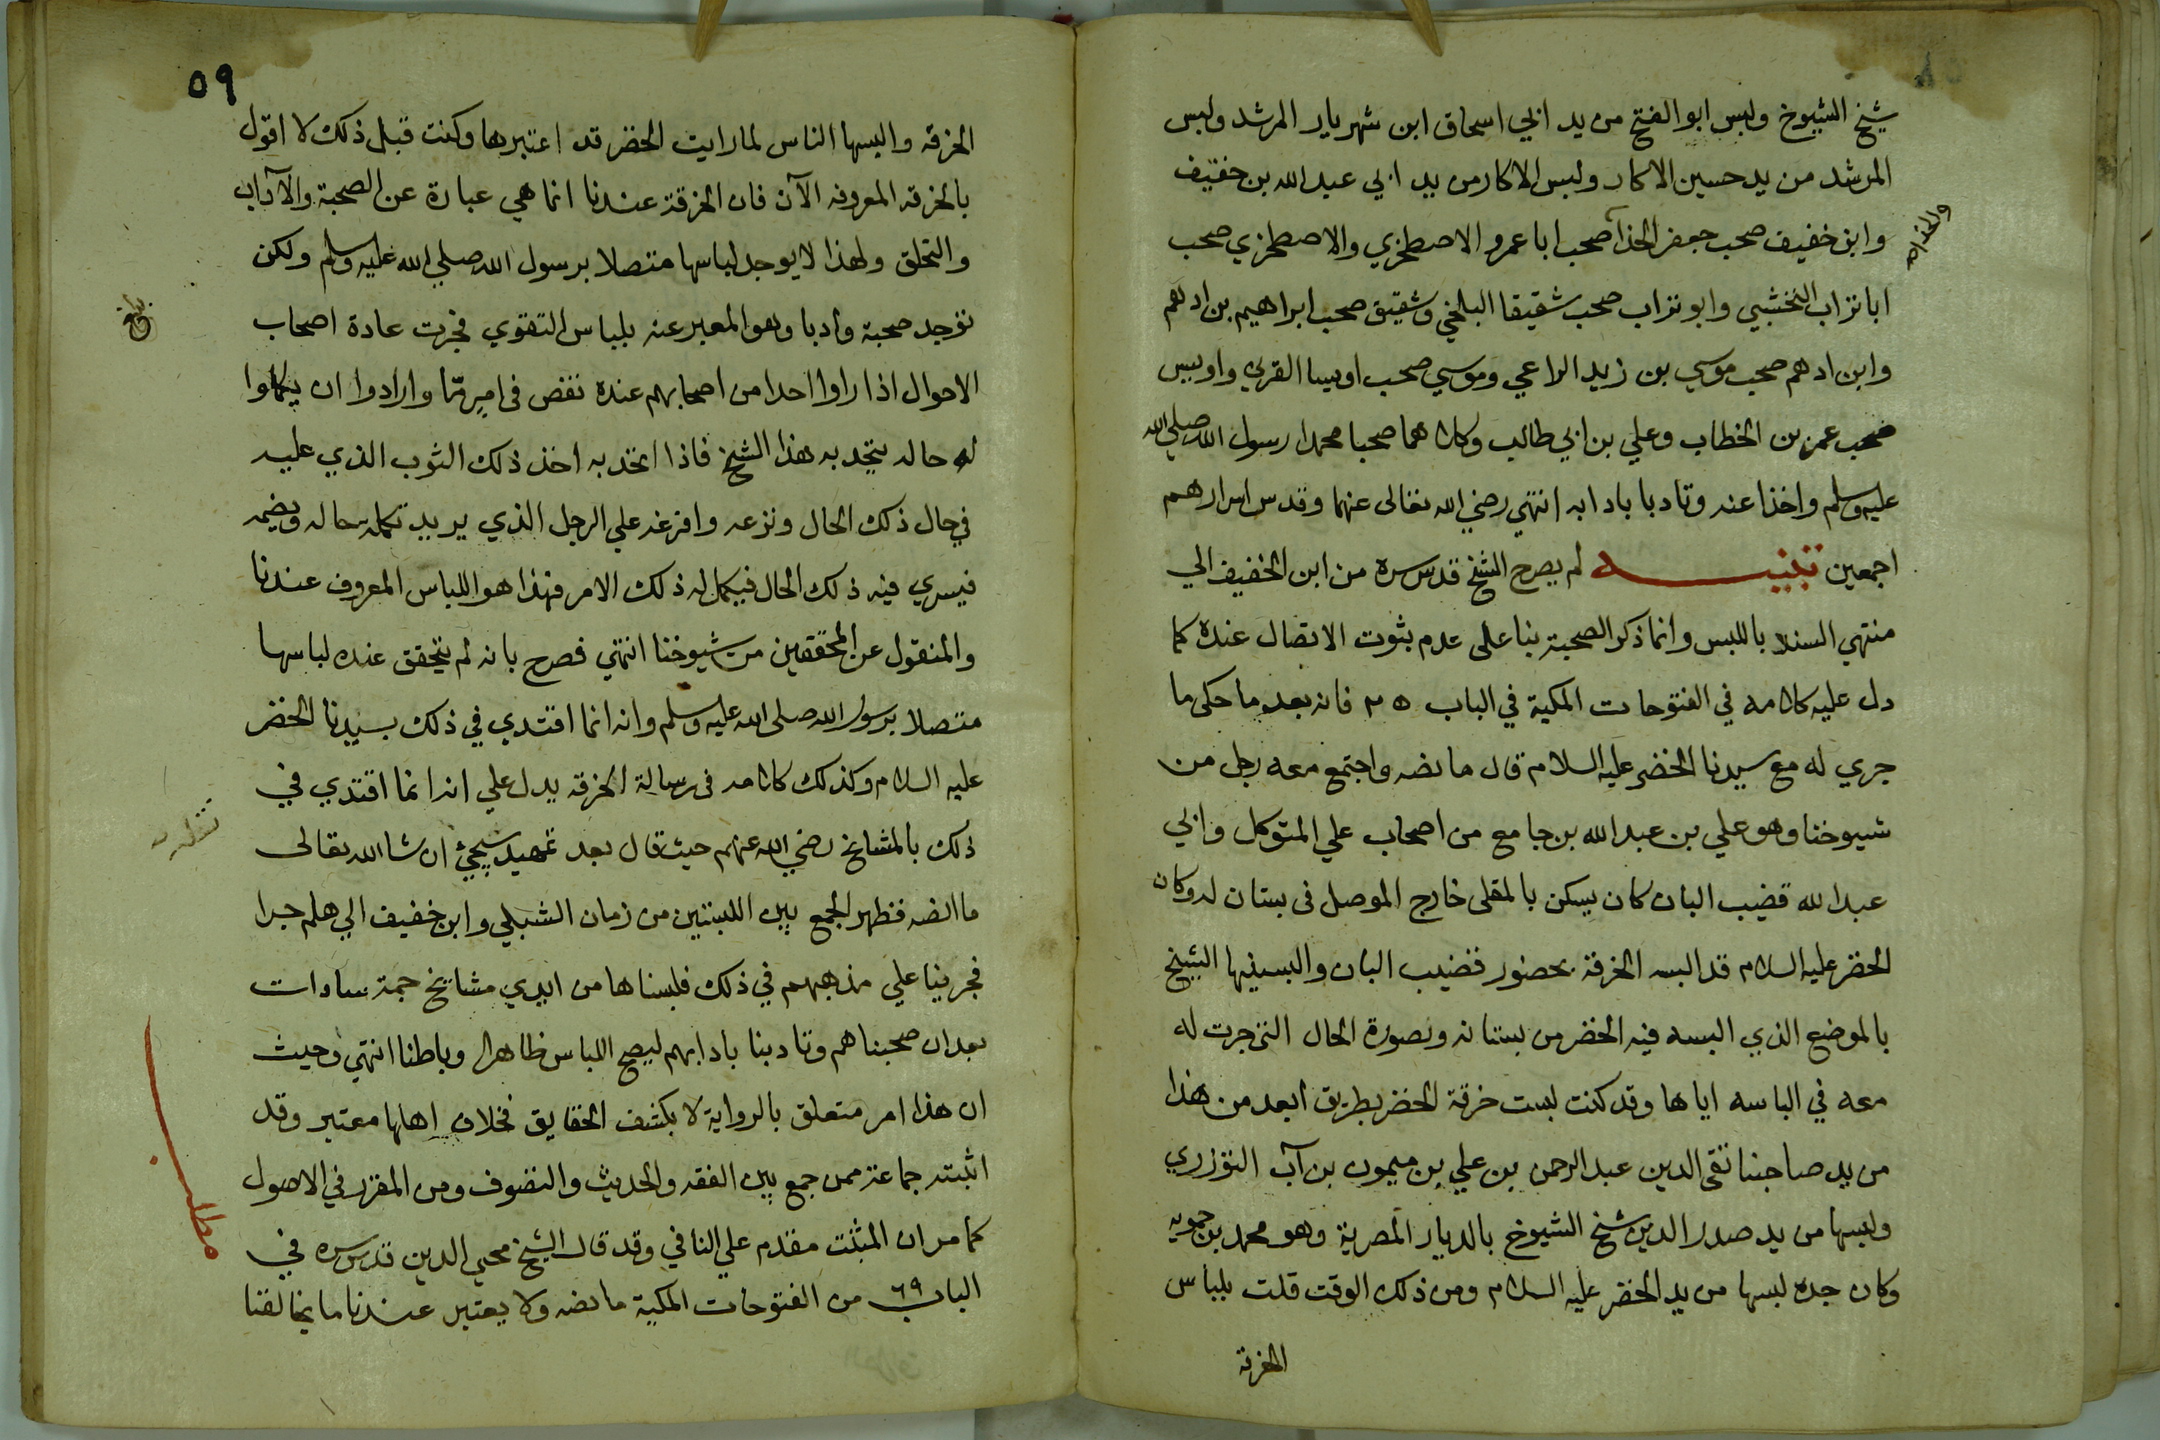 شيخ الشيوخ ولبس ابو الفتح من يد ابي اسحاق ابن شهريار المرشد ولبس
المرشد من يد حسين الاكار ولبس الاكار من يد ابي عبد الله بن خفيف
وابن خفيف صحب جعفر الحذآ صحب ابا عمرو الاصطخري والاصطخري صحب
ابا تراب النخشبي وابو تراب صحب شقيقا البلخي وشقيق صحب ابراهيم بن ادهم
وابن ادهم صحب موسي بن زيد الراعي وموسي صحب اويسا القرني واويس
صحب عمر بن الخطاب وعلي بن ابي طالب وكلاهما صحبا محمدا رسول الله صلي الله
عليه وسلم واخذا عنه وتادبا بادابه انتهي رضي الله تعالى عنهما وقدس اسرارهم
اجمعين تنبيه لم يصرح الشيخ قدس سره من ابن الخفيف الي
منتهي السند باللبس وانما ذكر الصحبة بنا على عدم ثبوت الاتصال عنده كما
دل عليه كلامه في الفتوحات المكية في الباب ٢٥ فانه بعد ما حكى ما
جري له مع سيدنا الخضر عليه السلام قال ما نصه واجتمع معه رجل من
شيوخنا وهو علي بن عبد الله بن جامع من اصحاب علي المتوكل وابي
عبد الله قضيب البان كان يسكن بالمقلى خارج الموصل فى بستان له وكان
الخضر عليه السلام قد البسه الخرقة بحضور قضيب البان والبسنيها الشيخ
بالموضع الذي البسه فيه الخضر من بستانه وبصورة الحال التي جرت له
معه في الباسه اياها وقد كنت لبست خرقة الخضر بطريق ابعد من هذا
من يد صاحبنا تقى الدين عبد الرحمن بن علي بن ميمون بن آب التوزري
ولبسها من يد صدر الدين شيخ الشيوخ بالديار المصرية وهو محمد بن حمويه
وكان جده لبسها من يد الخضر عليه السلام ومن ذلك الوقت قلت بلباس
الخرقة
٥٩
الخرقة والبسها الناس لما رايت الخضر قد اعتبرها وكنت قبل ذلك لا اقول
بالخرقة المعروفة الآن فان الخرقة عندنا انما هي عبارة عن الصحبة والآداب
والتخلق ولهذا لا يوجد لباسها متصلا برسول الله صلي الله عليه وسلم ولكن
توجد صحبة وادبا وهو المعبر عنه بلباس التقوي فجرت عادة اصحاب
الاحوال اذا راوا احدا من اصحابهم عنده نقص فى امر مّا وارادوا ان يكملوا
له حاله يتحد به هذا الشيخ فاذا اتحد به اخذ ذلك الثوب الذي عليه
في حال ذلك الحال ونزعه وافرغه علي الرجل الذي يريد تكملة حاله ويضمه
فيسري فيه ذلك الحال فيكمل له ذلك الامر فهذا هو اللباس المعروف عندنا
والمنقول عن المحققين من شيوخنا انتهي فصرح بانه لم يتحقق عنده لباسها
متصلا برسول الله صلى الله عليه وسلم وانه انما اقتدي في ذلك بسيدنا الخضر
عليه السلام وكذلك كلامه فى رسالة الخرقة يدل علي انه انما اقتدي في
ذلك بالمشايخ رضي الله عنهم حيث قال بعد تمهيد سيجئ ان شا الله تعالى
ما نصه فظهر الجمع بين اللبستين من زمان الشبلي وابن خفيف الي هلم جرا
فجرينا علي مذهبهم في ذلك فلبسناها من ايدي مشايخ جمة سادات
بعد ان صحبناهم وتادبنا بادابهم ليصح اللباس ظاهرا وباطنا انتهي وحيث
ان هذا امر متعلق بالرواية لا بكشف الحقايق فخلاف اهلها معتبر وقد
اثبته جماعة ممن جمع بين الفقه والحديث والتصوف ومن المقرر في الاصول
كما مر ان المثبت مقدم علي النافي وقد قال الشيخ محيي الدين قدس سره في
الباب ٦٩ من الفتوحات المكية ما نصه ولا يعتبر عندنا ما يخالفنا
بلغ
مطلب